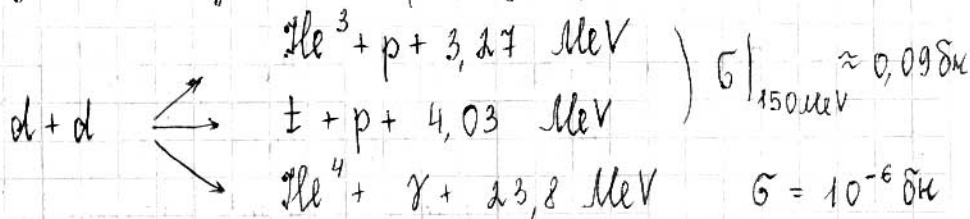 He³ + p + 3,27 MeV
d + d → t + p + 4,03 MeV ) σ|₁₅₀ₘₑᵥ ≈ 0,09 бн
He⁴ + γ + 23,8 MeV σ = 10⁻⁶ бн